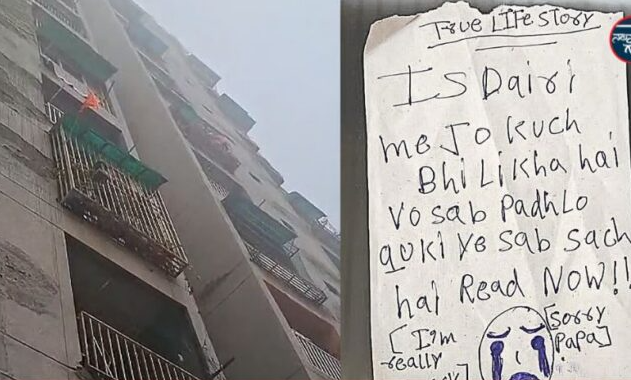 True LIFE STORY
IS Dairi
me Jo kuch
Bhi Likha hai
Vo sab Padh Lo
quki ye sab sach
hai Read NOW!!
[I'm
really
[Sorry
Papa]